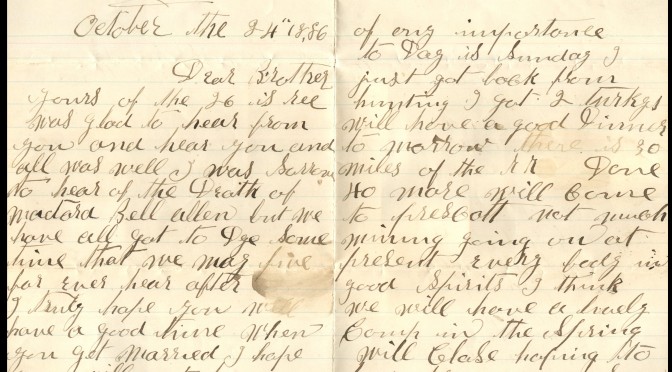 October the 24th 1886
Dear Brother
yours of the 26 is rec
was glad to hear from
you and hear you and
all was well I was Sarrow
to hear of the Death of
Bell allen but we
have all got to Dye Some
time that we may live
for Ever hear after
I truly hope you will
have a good time when
you get married I hope
of eny importance
to Day is Sunday I
just got back from
hunting I got 2 turkys
will have a good Dinner
to morrow there is 30
miles of the RR Done
40 more will Come
to prescott not much
mining going on at
present Every body in
good Spirits I think
we will have a lively
Comp in the Spring
will Close hoping to